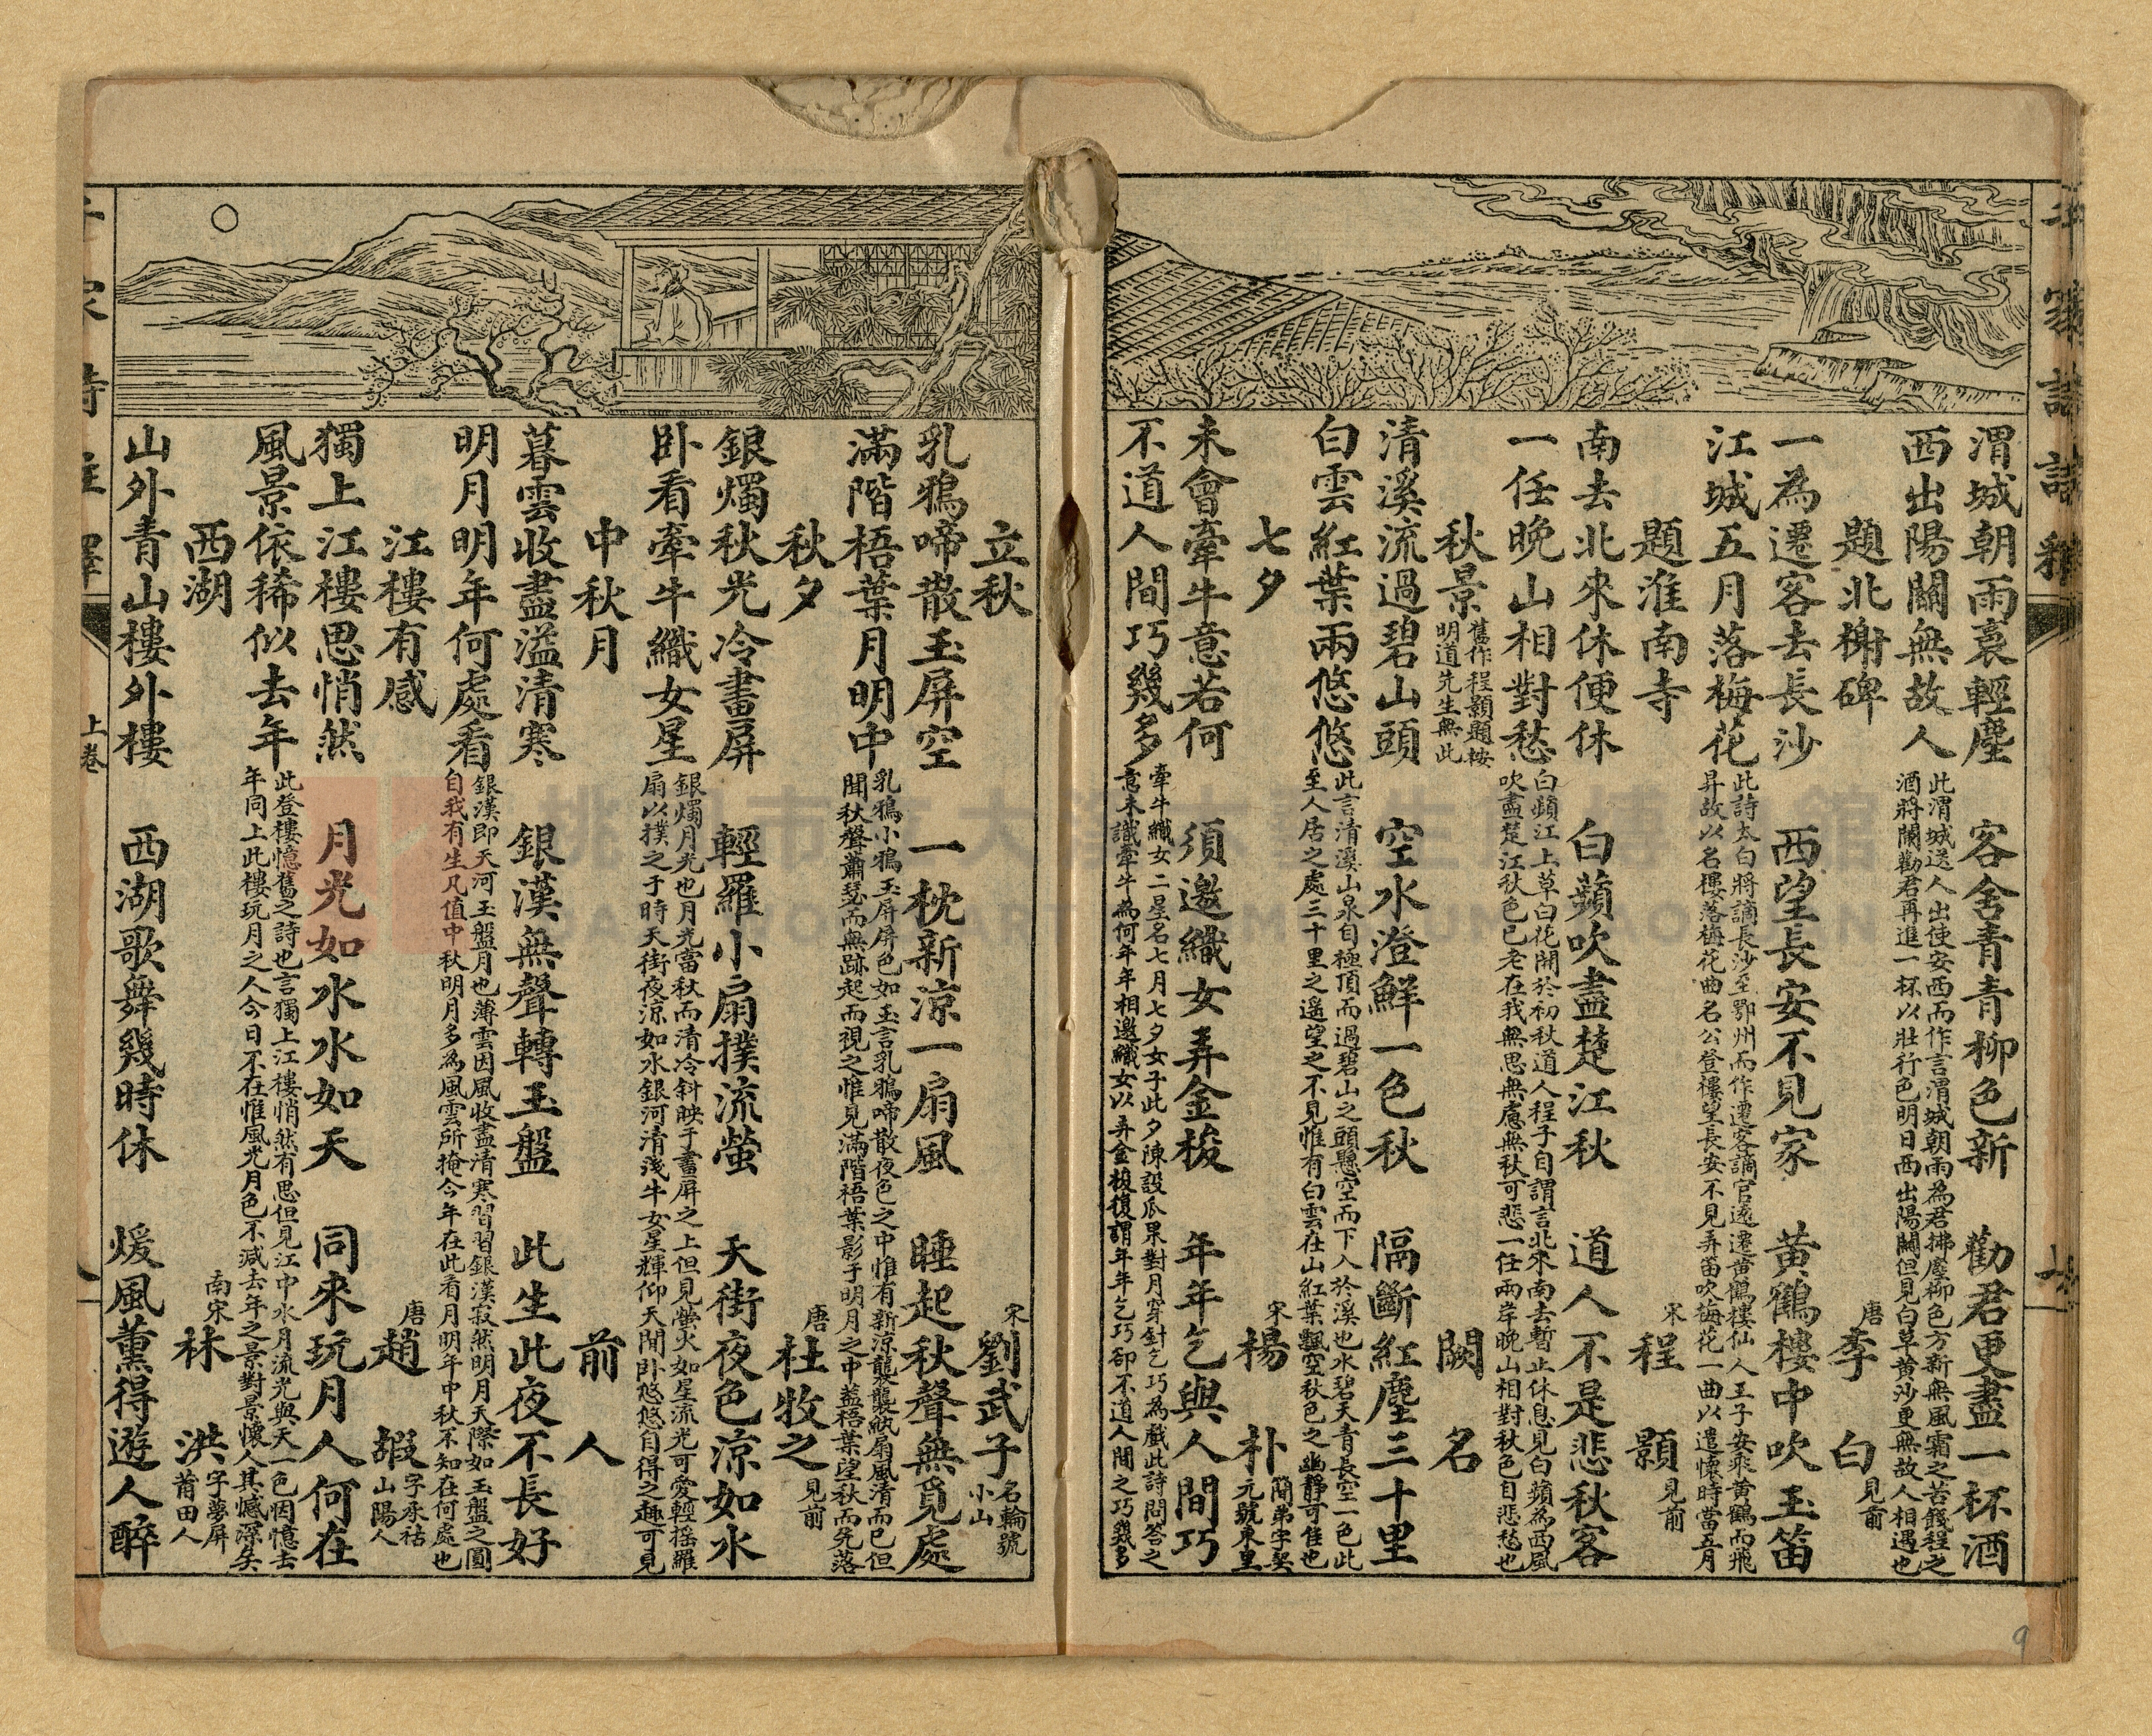 渭城朝雨裛輕塵　客舍青青柳色新　勸君更盡一杯酒
西出陽關無故人
此渭城送人出使安西而作言渭城朝雨為君拂塵柳色方新無風霜之苦餞程之
酒將闌勸君再進一杯以壯行色明日西出陽關但見白草黄沙更無故人相遇也
題北榭碑　唐　李白　見前
一為遷客去長沙　西望長安不見家　黄鶴樓中吹玉笛
江城五月落梅花
此詩太白將謫長沙至鄂州而作遷客謫官遠遷黄鶴樓仙人王子安乘黄鶴而飛
昇故以名樓落梅花曲名公登樓望長安不見弄笛吹梅花一曲以遣懷時當五月
題淮南寺　宋　程顥　見前
南去北來休便休　白蘋吹盡楚江秋　道人不是悲秋客
一任晚山相對愁
白蘋江上草白花開於初秋道人程子自謂言北來南去暫止休息見白蘋為西風
吹盡楚江秋色已老在我無思無慮無秋可悲一任兩岸晚山相對秋色自悲愁也
秋景　舊作程顥題桉
明道先生無此　闕名
清溪流過碧山頭　空水澄鮮一色秋　隔斷紅塵三十里
白雲紅葉兩悠悠
此言清溪山泉自極頂而過碧山之頭懸空而下入於溪也水碧天青長空一色此
至人居之處三十里之遙望之不見惟有白雲在山紅葉飄空秋色之幽靜可佳也
七夕　宋　楊朴　簡弟字契
元號東里
未會牽牛意若何　須邀織女弄金梭　年年乞與人間巧
不道人間巧幾多
牽牛織女二星名七月七夕女子此夕陳設瓜果對月穿針乞巧為戲此詩問答之
意未識牽牛為何年年相邀織女以弄金梭復謂年年乞巧卻不道人間之巧幾多
立秋　宋　劉武子　名輪號
小山
乳鴉啼散玉屏空　一枕新涼一扇風　睡起秋聲無覓處
滿階梧葉月明中
乳鴉小鴉玉屏屏色如玉言乳鴉啼散夜色之中惟有新涼襲襲紈扇風清而已但
聞秋聲蕭瑟而無跡起而視之惟見滿階梧葉影于明月之中蓋梧葉望秋而先落
秋夕　唐　杜牧之　見前
銀燭秋光冷畫屏　輕羅小扇撲流螢　天街夜色涼如水
卧看牽牛織女星
銀燭月光也月光當秋而清冷斜映于畫屏之上但見螢火如星流光可愛輕搖羅
扇以撲之于時天街夜涼如水銀河清淺牛女星輝仰天閒卧悠悠自得之趣可見
中秋月　前人
暮雲收盡溢清寒　銀漢無聲轉玉盤　此生此夜不長好
明月明年何處看
銀漢即天河玉盤月也薄雲因風收盡清寒習習銀漢寂然明月天際如玉盤之圓
自我有生凡值中秋明月多為風雲所掩今年在此看月明年中秋不知在何處也
江樓有感　唐　趙嘏　字承祜
山陽人
獨上江樓思悄然　月光如水水如天　同來玩月人何在
風景依稀似去年
此登樓憶舊之詩也言獨上江樓悄然有思但見江中水月流光與天一色因憶去
年同上此樓玩月之人今日不在惟風光月色不減去年之景對景懷人其憾深矣
西湖　南宋　林洪　字夢屏
莆田人
山外青山樓外樓　西湖歌舞幾時休　煖風薰得遊人醉
上卷
9